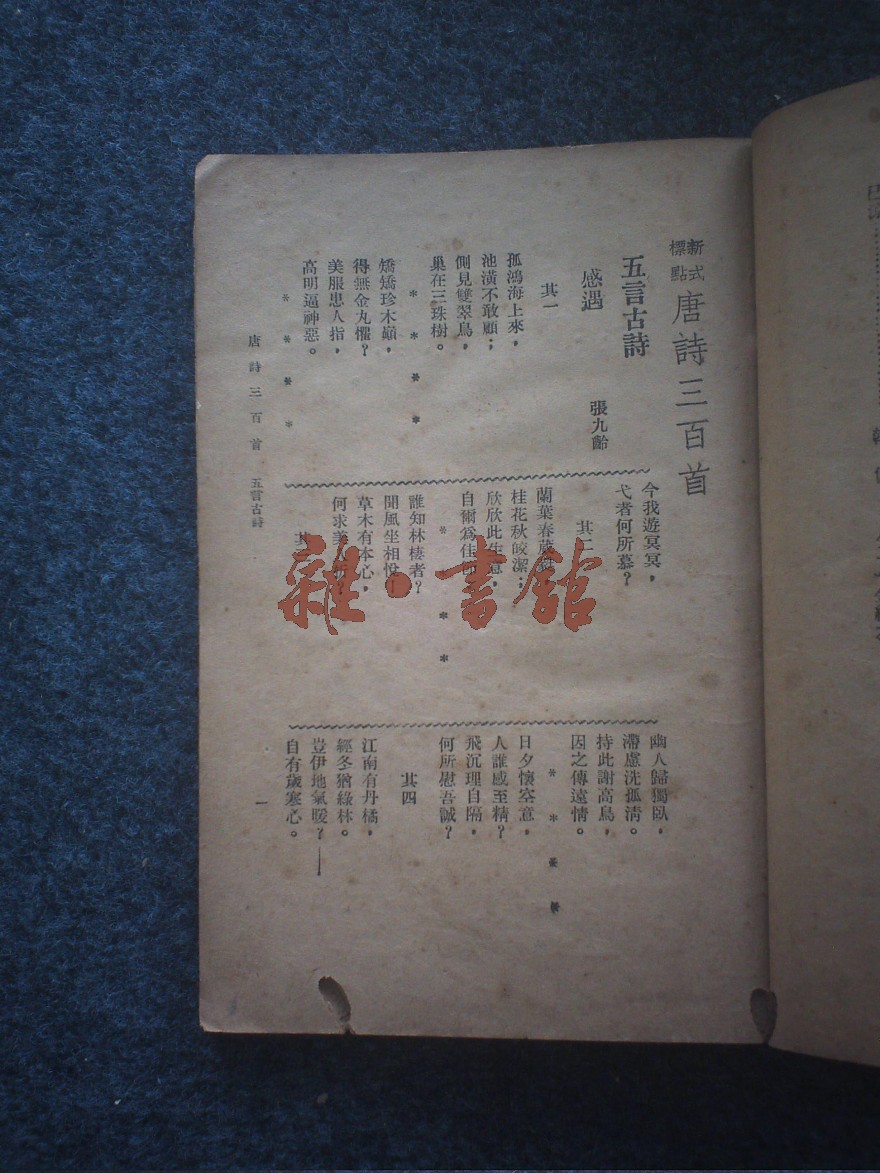 新式標點 唐詩三百首
五言古詩
感遇 張九齡
其一
孤鴻海上來，
池潢不敢顧；
側見雙翠鳥，
巢在三珠樹。
* * * *
矯矯珍木巔，
得無金丸懼？
美服患人指，
高明逼神惡。
* * * *
今我遊冥冥，
弋者何所慕？
其二
蘭葉春葳蕤，
桂花秋皎潔；
欣欣此生意，
自爾為佳節
* * *
誰知林棲者？
聞風坐相悅！
草木有本心，
何求美人折？
其
幽人歸獨臥，
滯慮洗孤清。
持此謝高鳥，
因之傳遠情。
* * * *
日夕懷空意，
人誰感至精？
飛沉理自隔，
何所慰吾誠？
其四
江南有丹橘，
經冬猶綠林。
豈伊地氣暖？——
自有歲寒心。
唐詩三百首 五言古詩
一
雜·書館